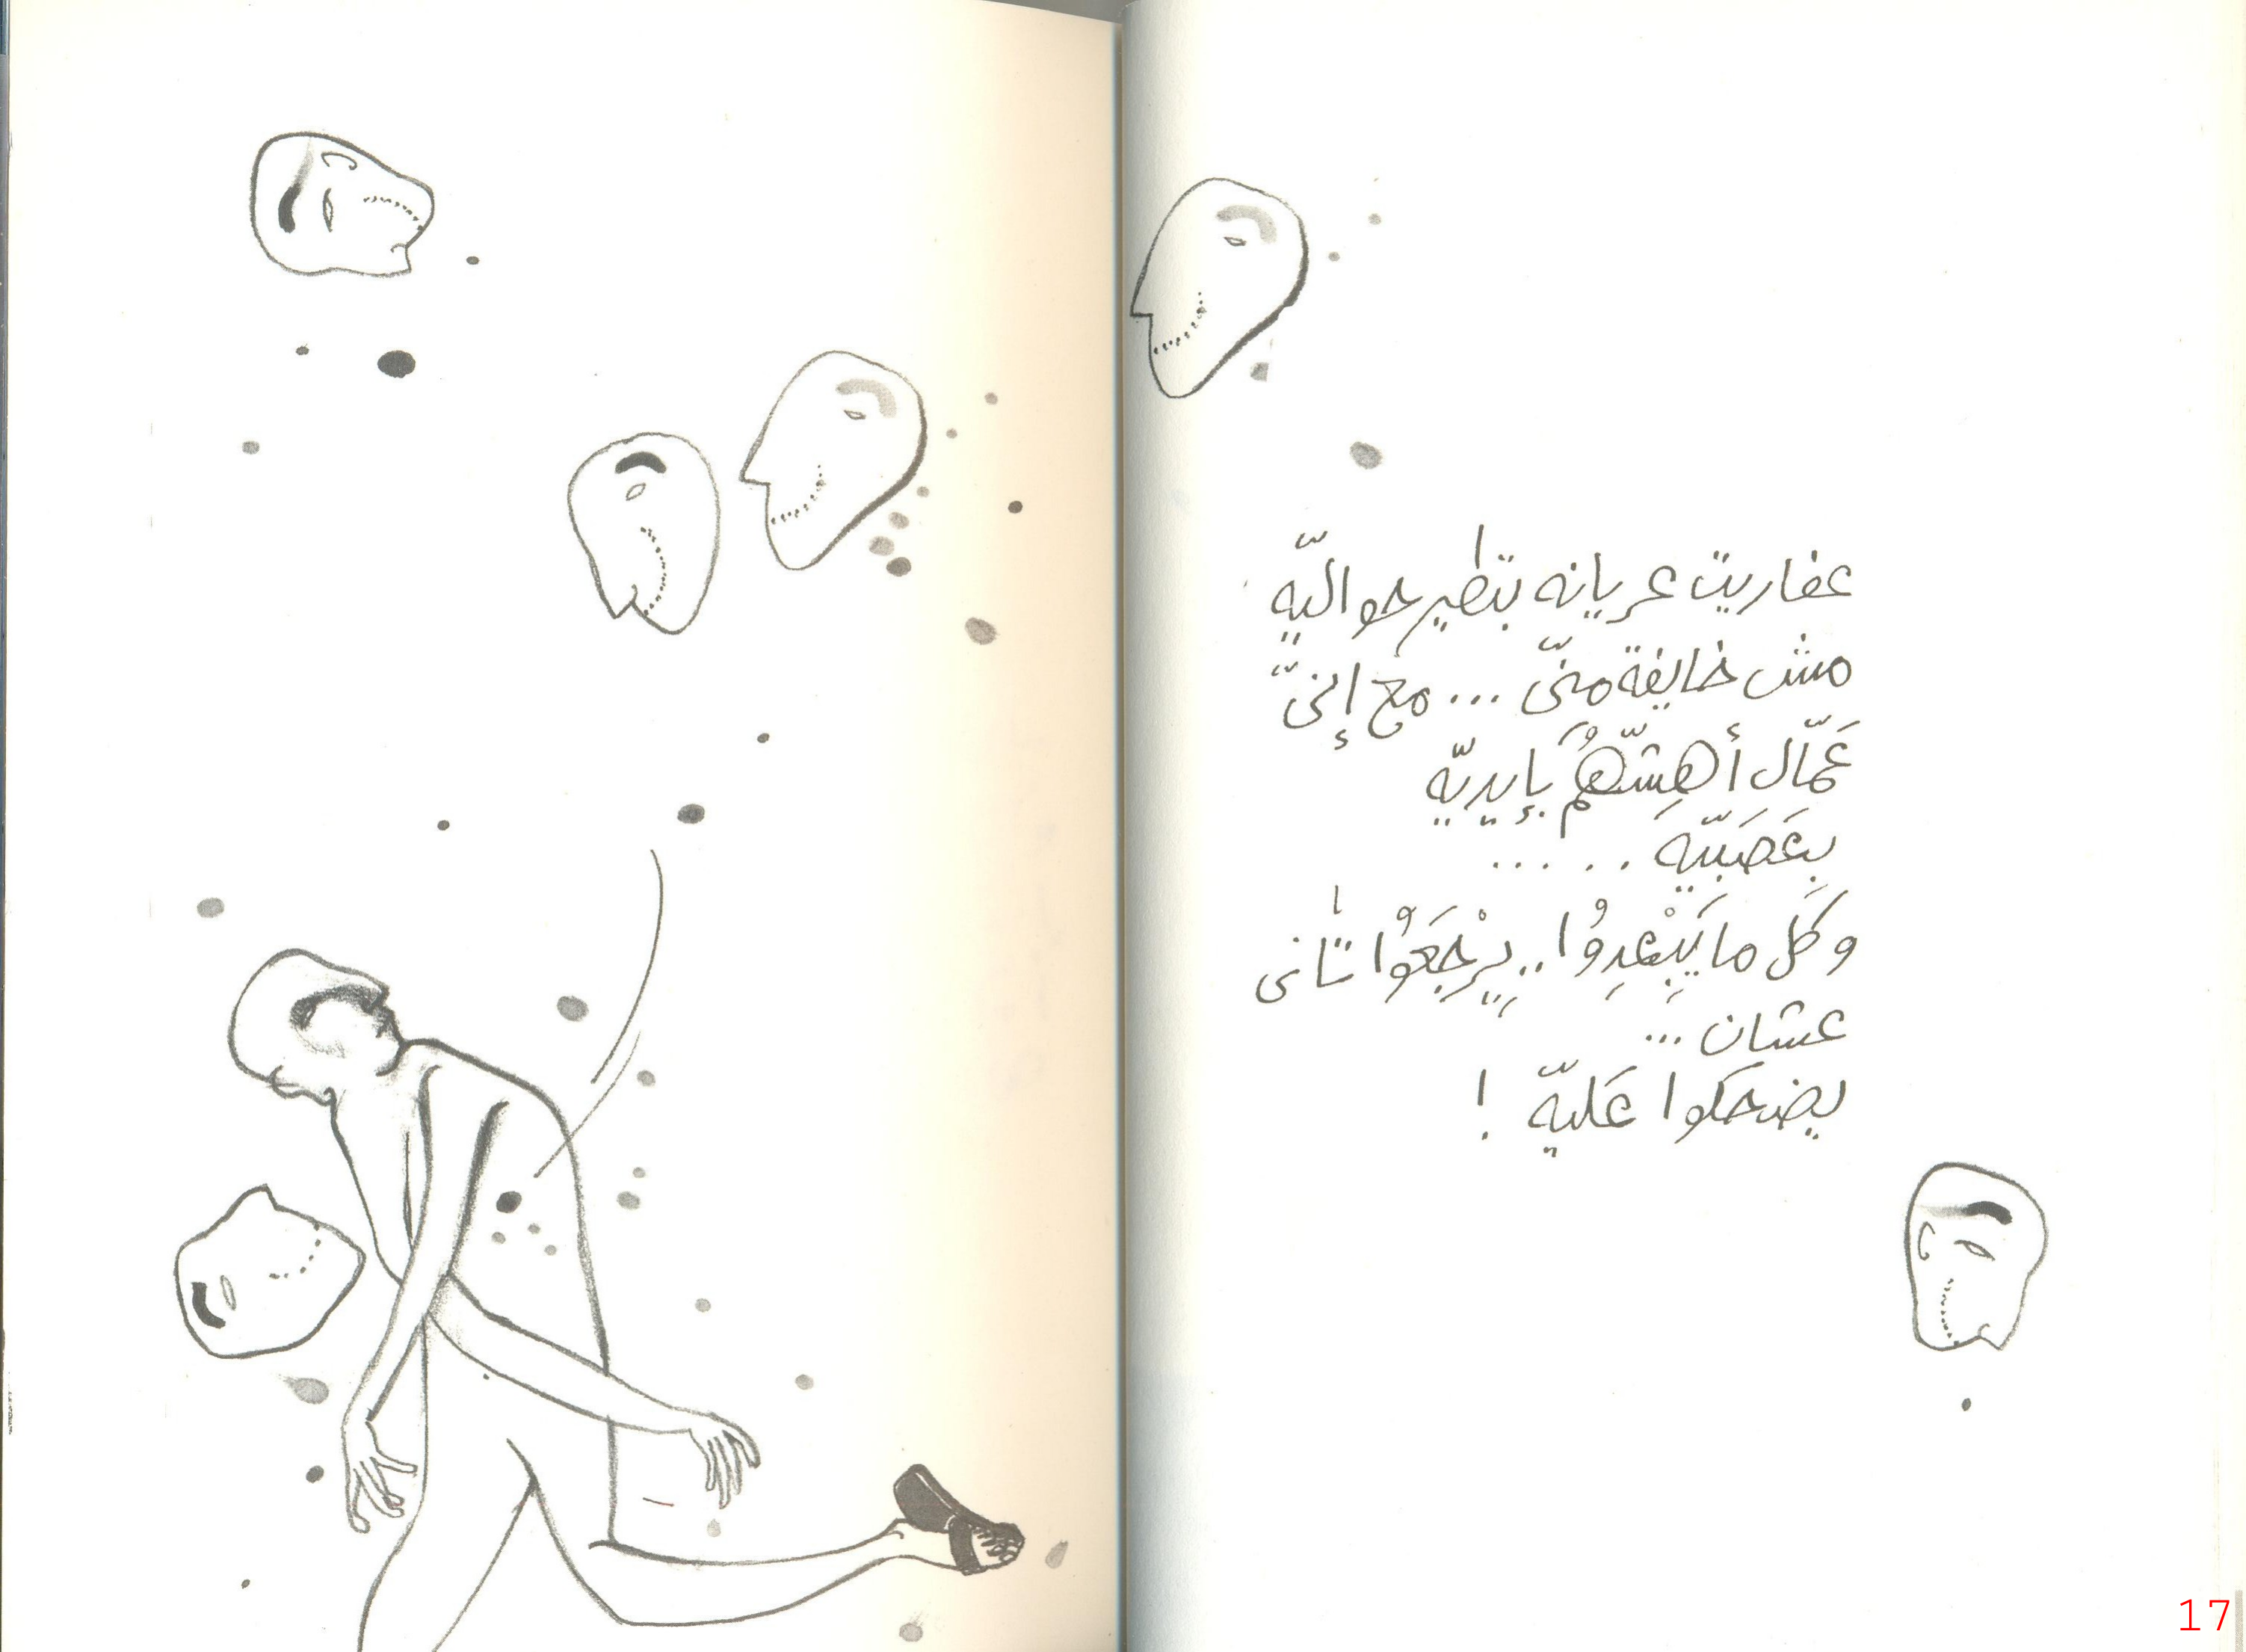 عفاريت عريانه بتطير حواليّه
مش خايفة منّى ... مع إنىّ
عَمّال أهِشّهُمْ بإيديّه
بِعَصَبيّه .. ...
وكَل ما يِبْعِدوُا .. يِرْجَعوُا تانى
عشان ...
يضحَكوا عَليّه !
17